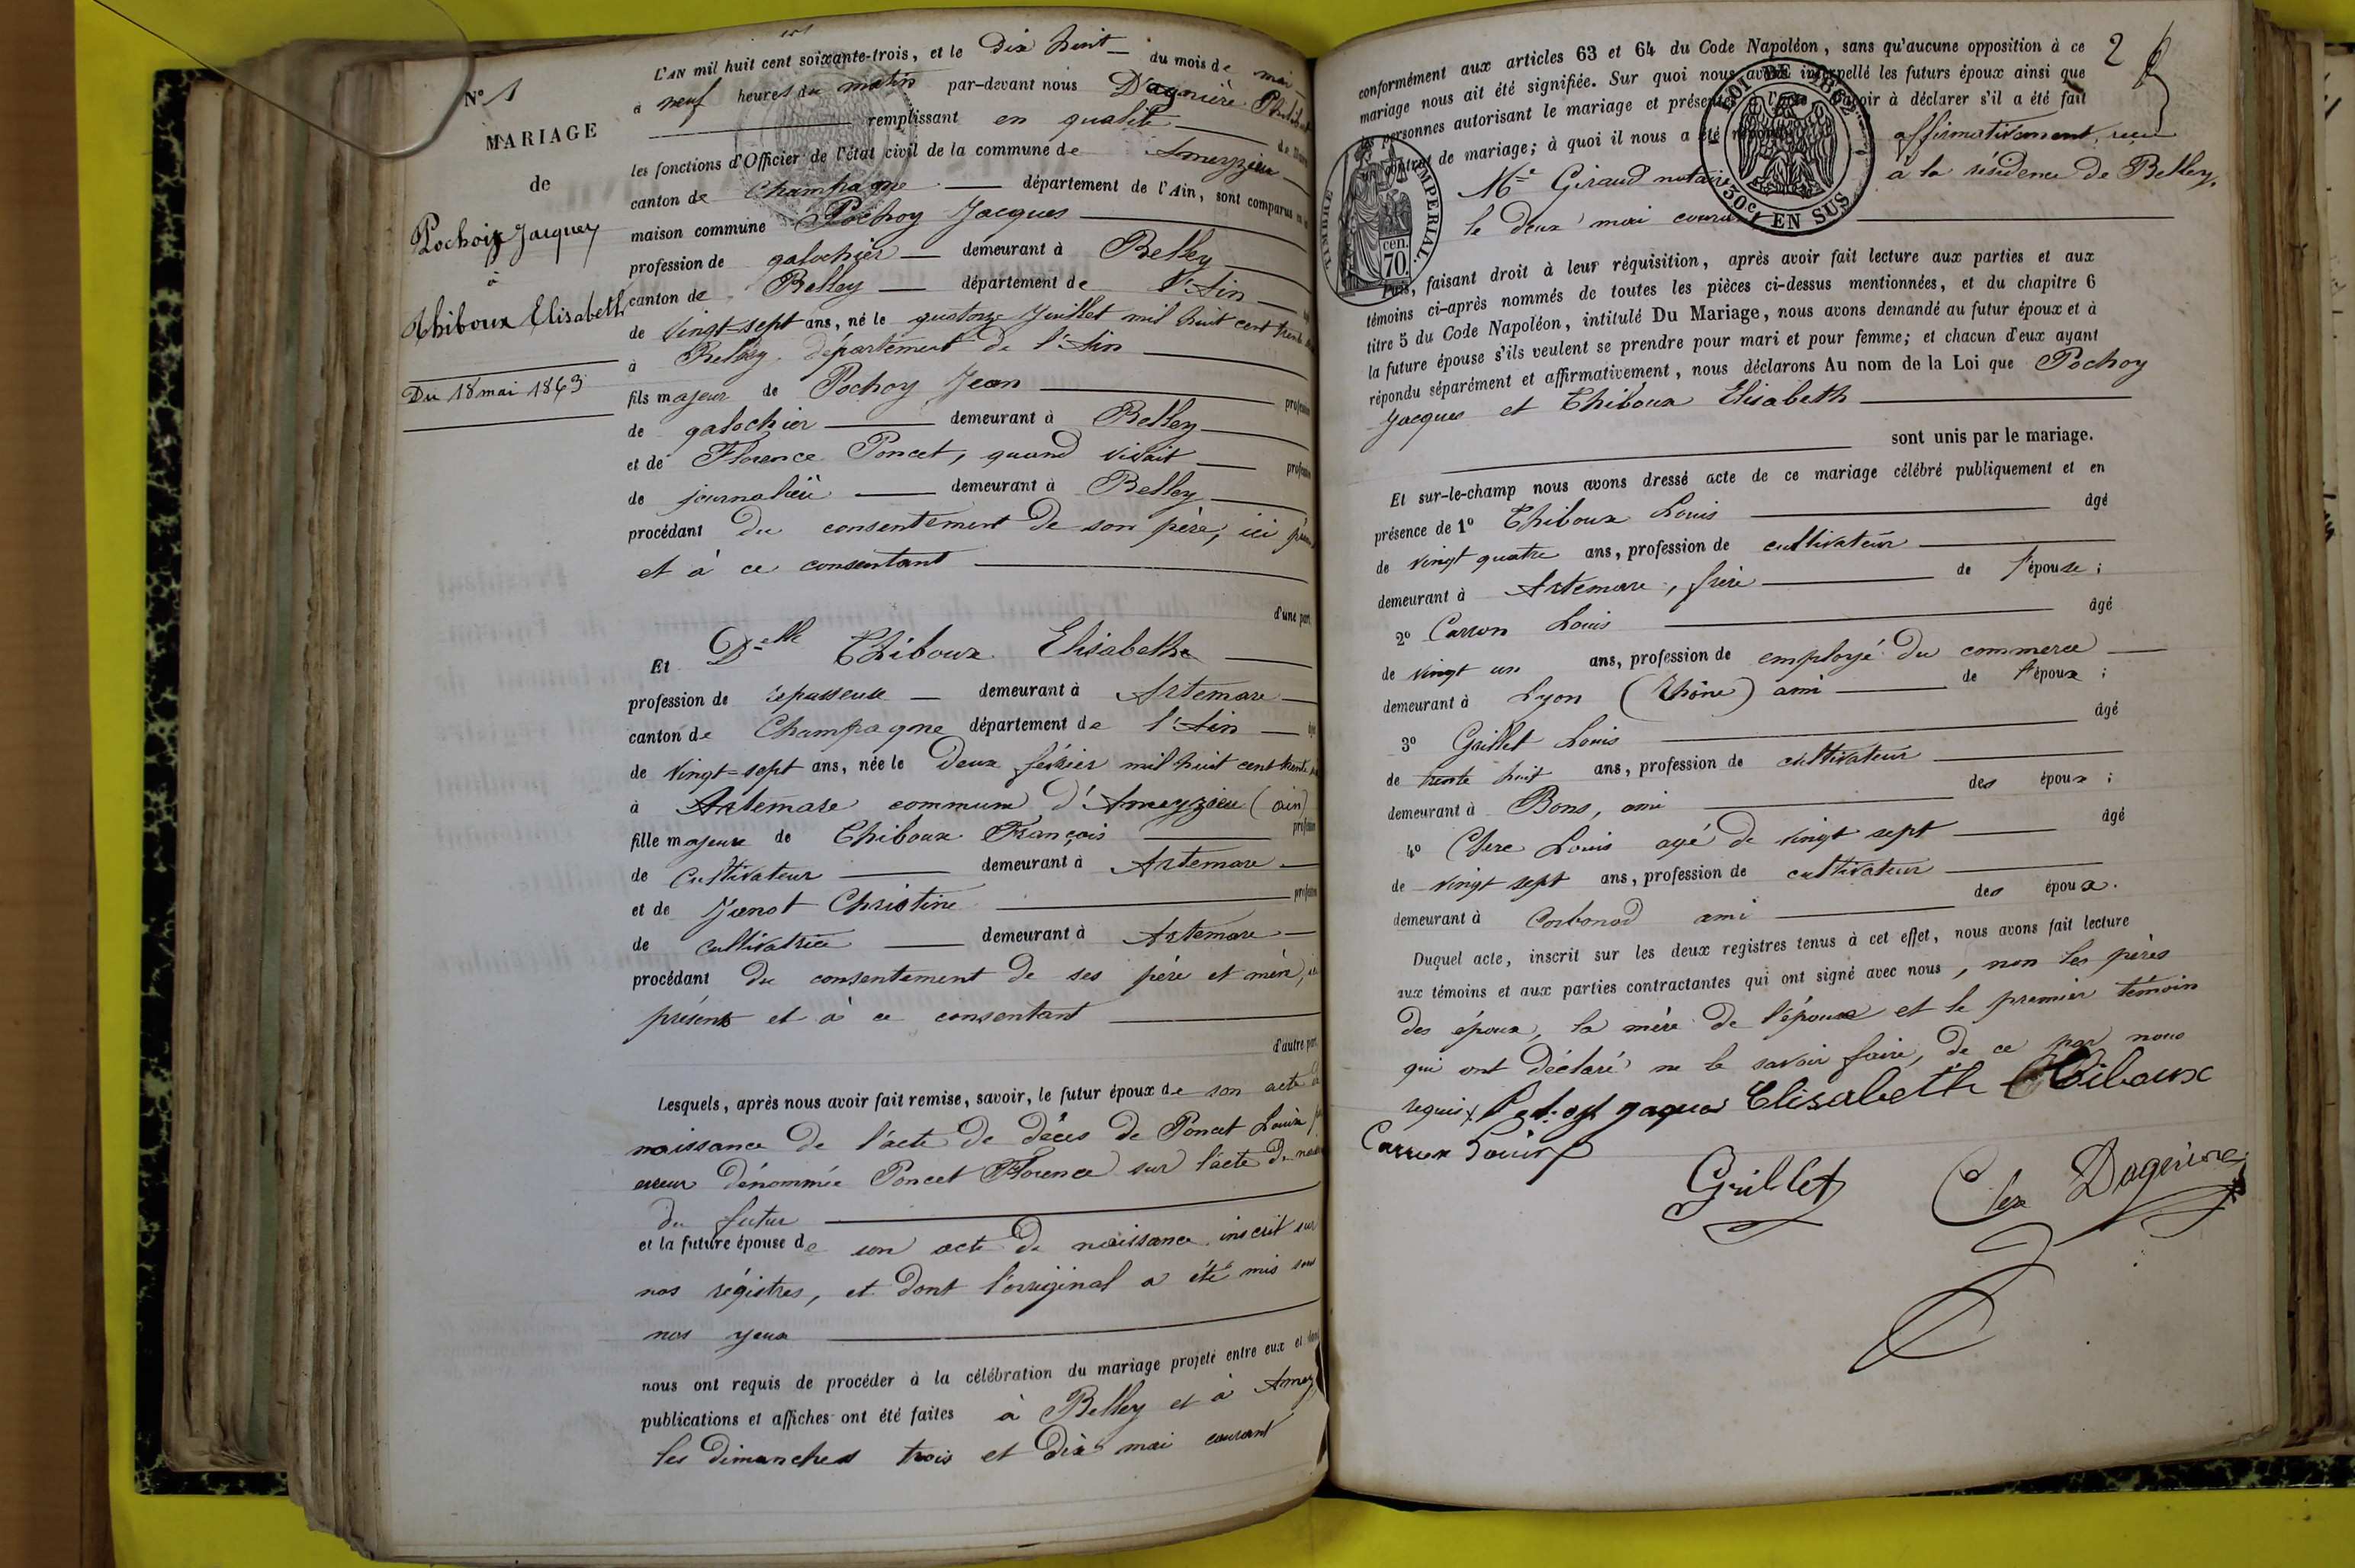 N° 1
MARIAGE
de
Pochoix Jacques
à
Thiboux Elisabeth
Du 18 mai 1863
L'AN mil huit cent soixante-trois, et le Dix huit du mois de mai
à neuf heures du matin par-devant nous Dagnière Philibert
remplissant en qualité de Maire
les fonctions d'Officier de l'état civil de la commune de Ameyzieu
canton de Champagne département de l'Ain, sont comparus en
maison commune Pochoy Jacques
profession de galochier demeurant à Belley
canton de Belley département de l'Ain
de Vingt-sept ans, né le quatorze Juillet mil huit cent trente
à Belley département de l'Ain
fils majeur de Pochoy Jean profession
de galochier demeurant à Belley
et de Florence Poncet, quand vivait profession
de journalière demeurant à Belley
procédant du consentement de son père, ici
et à ce consentant
d'une part.
Et Delle Thiboux Elisabethe
profession de repasseuse demeurant à Artemare
canton de Champagne département de l'Ain
de Vingt-sept ans, née le Deux février mil huit cent trente
à Artemare commune d'Ameyzieu (ain)
fille majeure de Thiboux François profession
de Cultivateur demeurant à Artemare
et de Janot Christine profession
de cultivatrice demeurant à Artemare
procédant du consentement de ses père et mère, ici
présents et à ce consentant
d'autre part.
Lesquels, après nous avoir fait remise, savoir, le futur époux de son acte de
naissance de l'acte de décès de Poncet Louise
erreur dénommée Poncet Florence sur l'acte de
du futur
et la future épouse de son acte de naissance inscrit sur
nos régistres, et dont l'original a été mis sous
nos yeux
nous ont requis de procéder à la célébration du mariage projeté entre eux et dont
publications et affiches ont été faites à Belley et à Amey
les dimanches trois et dix mai courant
2
conformément aux articles 63 et 64 du Code Napoléon, sans qu'aucune opposition à ce
mariage nous ait été signifiée. Sur quoi nous avons interpellé les futurs époux ainsi que
les personnes autorisant le mariage et présentes à l'acte à déclarer s'il a été fait
contrat de mariage; à quoi il nous a été répondu affirmativement, reçu
Me Giraud notaire à la résidence de Belley,
le deux mai courant
LOI DE 1862
30c EN SUS
TIMBRE IMPERIAL
70 cen.
Puis, faisant droit à leur réquisition, après avoir fait lecture aux parties et aux
témoins ci-après nommés de toutes les pièces ci-dessus mentionnées, et du chapitre 6
titre 5 du Code Napoléon, intitulé Du Mariage, nous avons demandé au futur époux et à
la future épouse s'ils veulent se prendre pour mari et pour femme; et chacun d'eux ayant
répondu séparément et affirmativement, nous déclarons Au nom de la Loi que Pochoy
Jacques et Thiboux Elisabeth
sont unis par le mariage.
Et sur-le-champ nous avons dressé acte de ce mariage célébré publiquement et en
présence de 1° Thiboux Louis âgé
de vingt quatre ans, profession de cultivateur
demeurant à Artemare, frère de l'épouse;
2° Carron Louis âgé
de vingt un ans, profession de employé du commerce
demeurant à Lyon (Rhône) ami de l'époux;
3° Grillet Louis âgé
de trente huit ans, profession de cultivateur
demeurant à Bons, ami des époux;
4° Clere Louis agé de vingt sept âgé
de vingt sept ans, profession de cultivateur
demeurant à Corbonod ami des époux.
Duquel acte, inscrit sur les deux registres tenus à cet effet, nous avons fait lecture
aux témoins et aux parties contractantes qui ont signé avec nous, non les pères
des époux, la mère de l'épouse et le premier témoin
qui ont déclaré ne le savoir faire, de ce par nous
requis Jaques Elisabeth Thiboux
Carron Louis
Grillet Dagnière